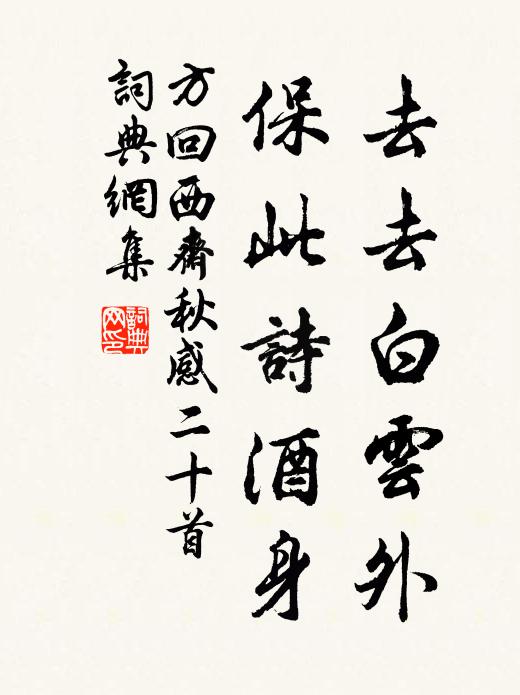 去去白雲外
保此詩酒身
方回西齋秋感二十首
詞典網集
詞典
网印